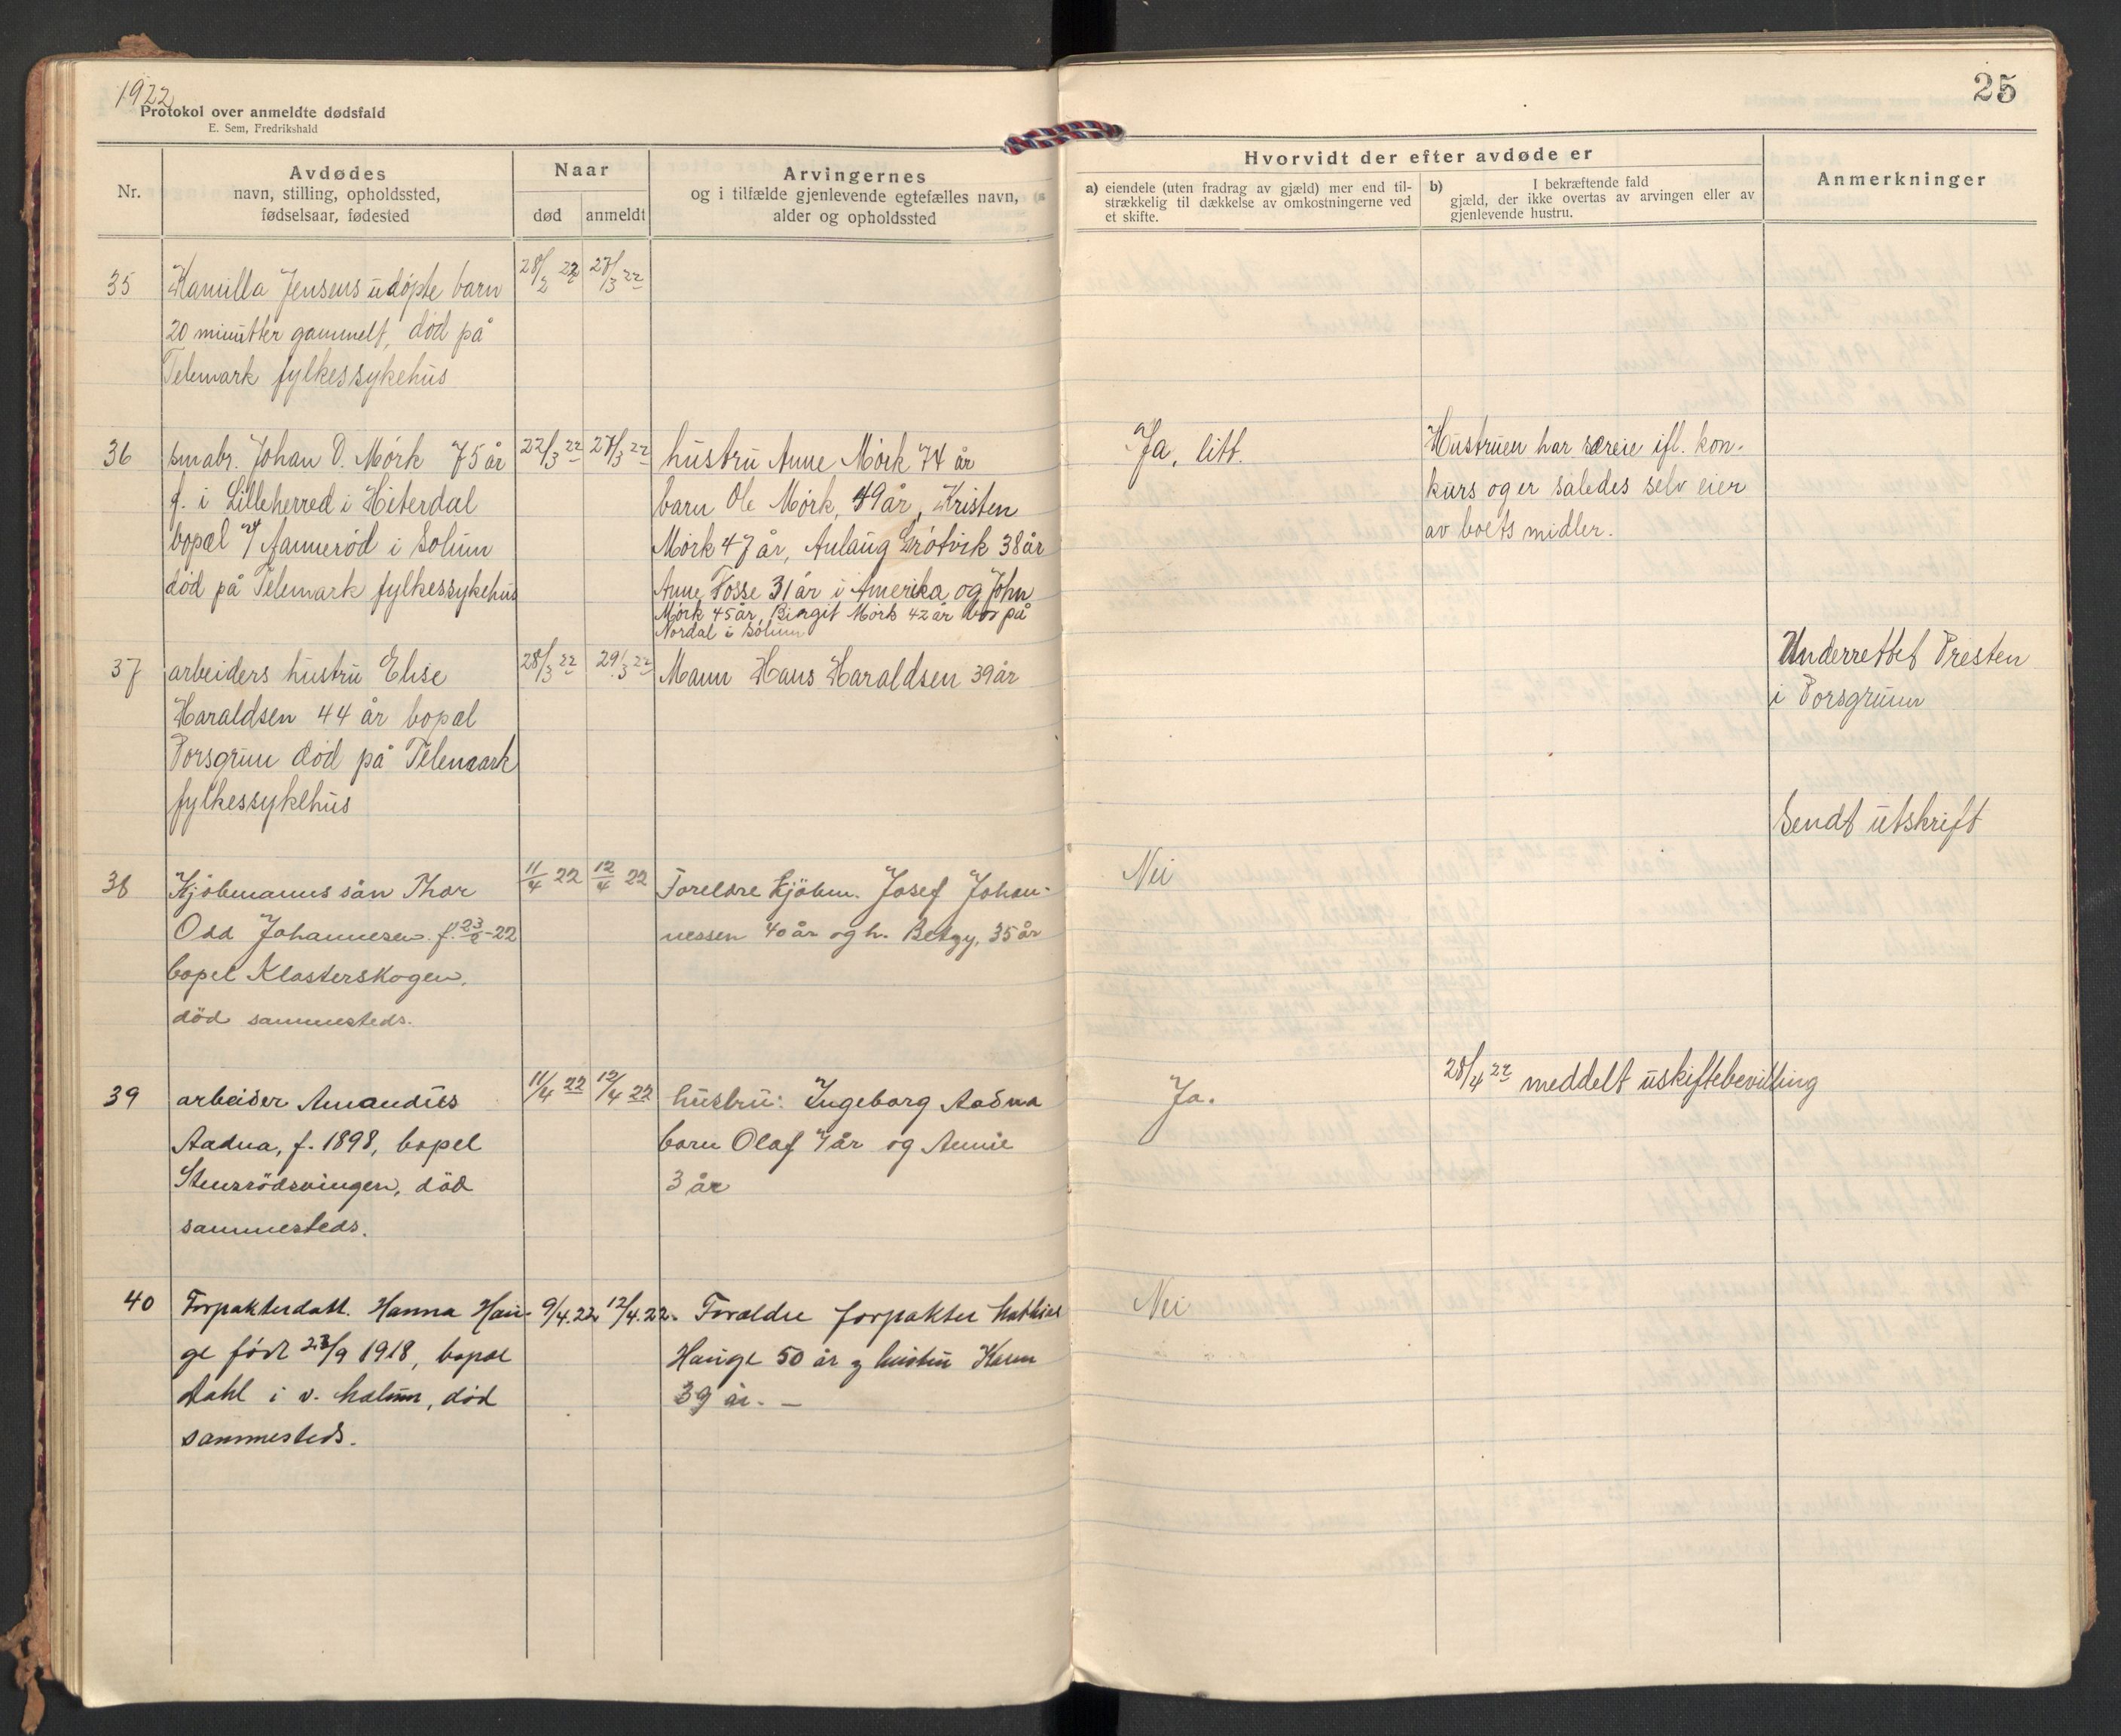 1922
Protokol over anmeldte dødsfald
E. Sem, Fredrikshald
25
Nr.
Avdødes
navn, stilling, opholdssted,
fødselsaar, fødested
Naar
død
anmeldt
Arvingernes
og i tilfælde gjenlevende egtefælles navn,
alder og opholdssted
Hvorvidt der efter avdøde er
a) eiendele (uten fradrag av gjæld) mer end til-
strækkelig til dækkelse av omkostningerne ved
et skifte.
b) I bekræftende fald
gjæld, der ikke overtas av arvingen eller av
gjenlevende hustru.
Anmerkninger
35
Kamilla Jensens udøpte barn
20 minutter gammelt, død på
Telemark fylkessykehus
28/2 22
27/3 22
36
smabr. Johan O. Mørk 75 år
f. i Lilleherred i Hiterdal
bopæl Aannerød i Solum
død på Telemark fylkessykehus
22/3 22
27/3 22
hustru Anne Mørk 74 år
barn Ole Mørk, 49 år, Kristen
Mørk 47 år, Anlaug Grøtvik 38 år
Anne Fosse 31 år i Amerika og John
Mørk 45 år, Birgit Mørk 42 år bor på
Nordal i Solum
Ja, litt.
Hustruen har særeie ifl. kon-
kurs og er således selv eier
av boets midler.
37
arbeiders hustru Elise
Haraldsen 44 år bopæl
Porsgrun død på Telemark
fylkessykehus
28/3 22
29/3 22
Mann Hans Haraldsen 39 år
Underrettet Presten
i Porsgrunn
Sendt utskrift
38
Kjöbmanns sån Thor
Odd Johannesen f. 23/2-22
bopel Klosterskogen,
död sammesteds.
11/4 22
12/4 22
Foreldre Kjöbm. Josef Johan-
nessen 40 år og h. Betzy, 35 år
Nei
39
arbeider Amandus
Aadna, f. 1898, bopel
Stensrödsvingen, död
sammesteds.
11/4 22
12/4 22
hustru: Ingeborg Aadna
barn Olaf 7 år og Annie
3 år
Ja.
28/4 22 meddelt uskiftebevilling
40
Forpakterdatt. Hanna Hau-
ge født 23/9 1918, bopæl
Dahl i v. Solum, død
sammesteds.
9/4.22
12/4.22.
Forældre forpakter Mathias
Hauge 50 år og hustru Karen
39 år. -
Nei